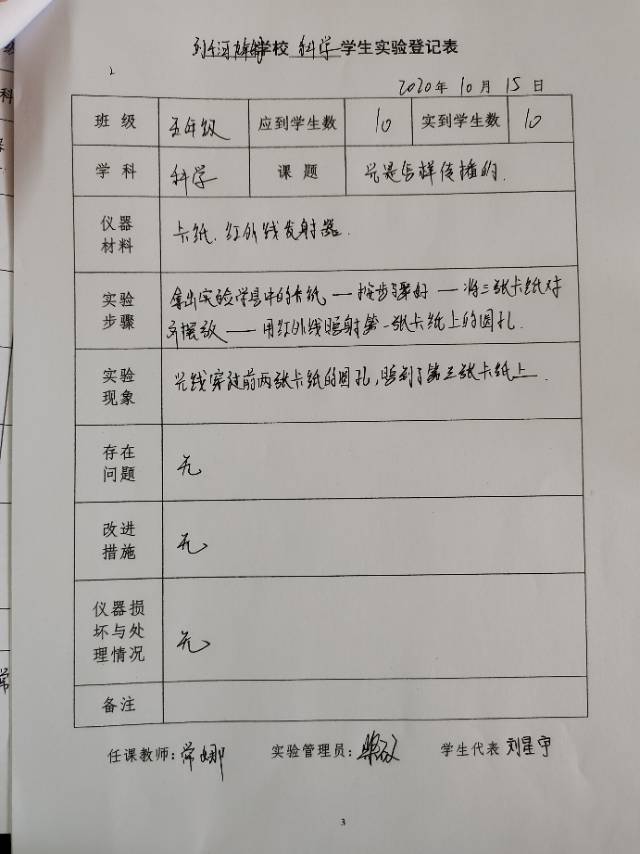 学校 科学 学生实验登记表
2020年10月15日
班级 五年级 应到学生数 10 实到学生数 10
学科 科学 课题 光是怎样传播的.
仪器
材料
卡纸.红外线发射器.
实验
步骤
拿出实验学具中的卡纸——按步骤好——将三张卡纸对
齐摆放——用红外线照射第一张卡纸上的圆孔.
实验
现象
光线穿过前两张卡纸的圆孔,照到了第三张卡纸上.
存在
问题
无
改进
措施
无
仪器损
坏与处
理情况
无
备注
任课教师:常娜 实验管理员: 学生代表 刘星宇
3